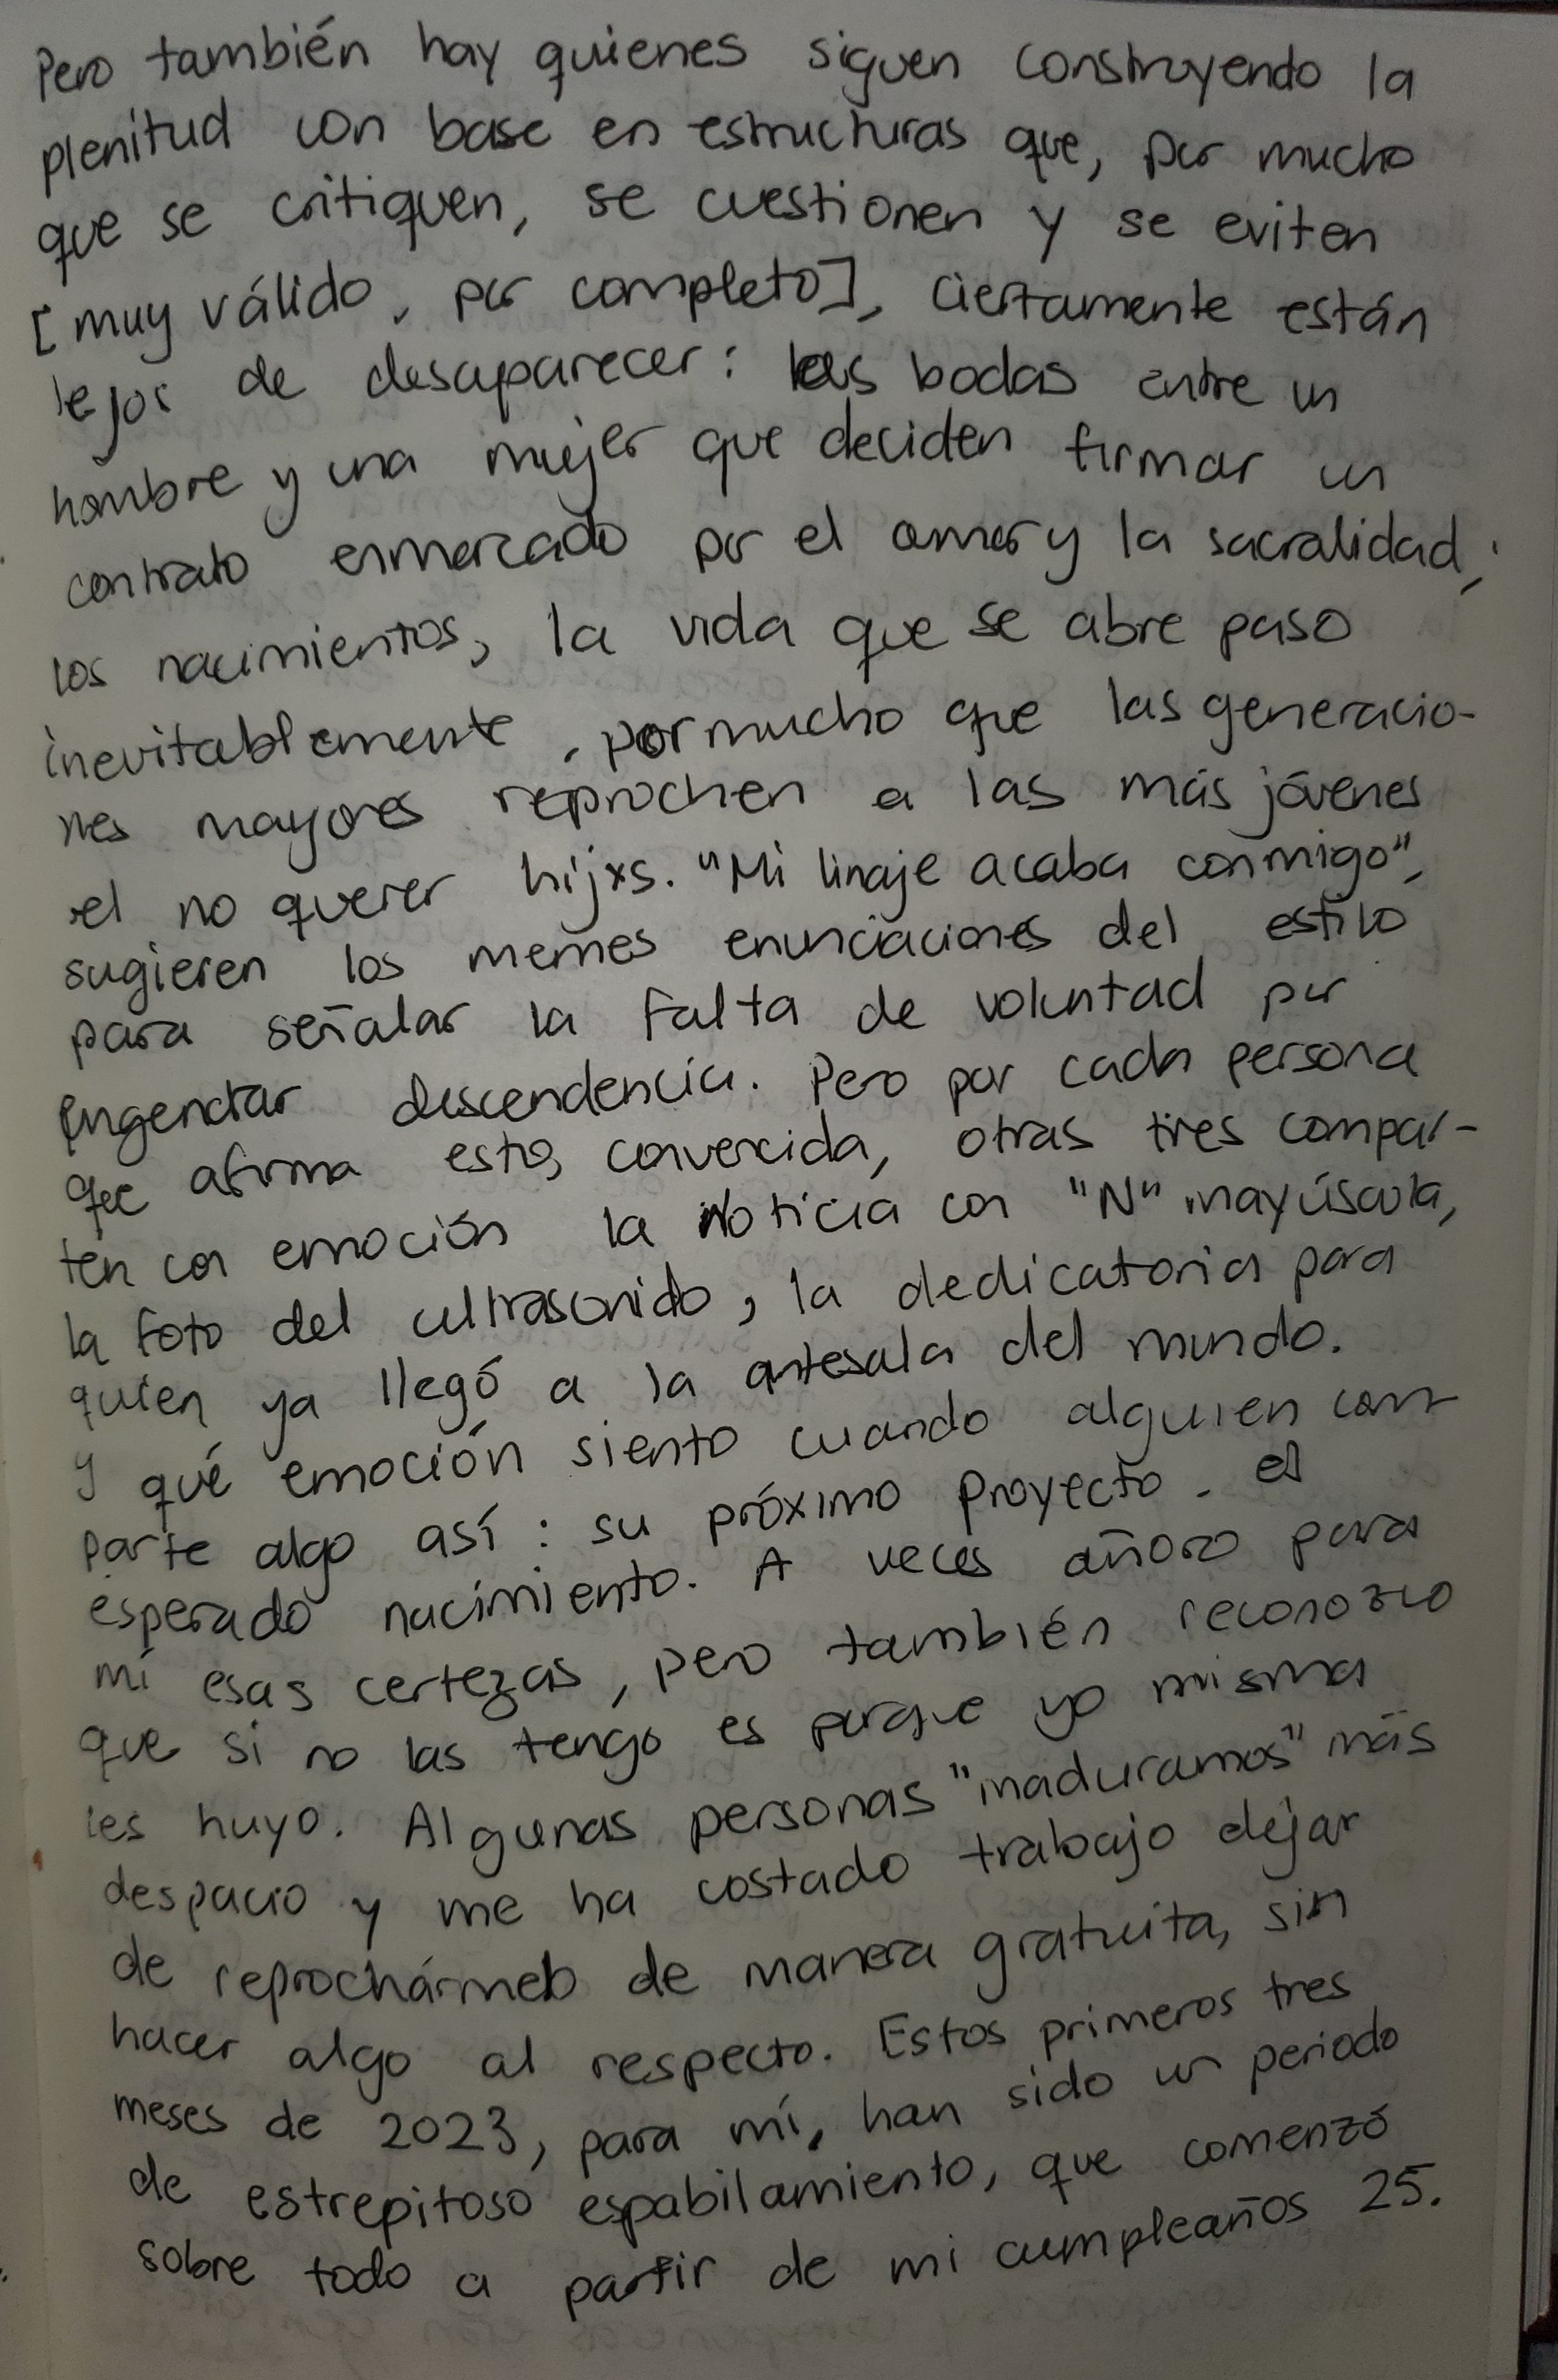 Pero también hay quienes siguen construyendo la
plenitud con base en estructuras que, por mucho
que se critiquen, se cuestionen y se eviten
[muy válido, por completo], ciertamente están
lejos de desaparecer: las bodas entre un
hombre y una mujer que deciden firmar un
contrato enmarcado por el amor y la sacralidad;
los nacimientos, la vida que se abre paso
inevitablemente, por mucho que las generacio-
nes mayores reprochen a las más jóvenes
el no querer hijxs. "Mi linaje acaba conmigo",
sugieren los memes enunciaciones del estilo
para señalar la falta de voluntad por
engendrar descendencia. Pero por cada persona
que afirma esto, convencida, otras tres compar-
ten con emoción la Noticia con "N" mayúscula,
la foto del ultrasonido, la dedicatoria para
quien ya llegó a la antesala del mundo.
Y qué emoción siento cuando alguien com-
parte algo así: su próximo proyecto, el
esperado nacimiento. A veces añoro para
mí esas certezas, pero también reconozco
que si no las tengo es porque yo misma
les huyo. Algunas personas "maduramos" más
despacio y me ha costado trabajo dejar
de reprochármelo de manera gratuita, sin
hacer algo al respecto. Estos primeros tres
meses de 2023, para mí, han sido un periodo
de estrepitoso espabilamiento, que comenzó
sobre todo a partir de mi cumpleaños 25.